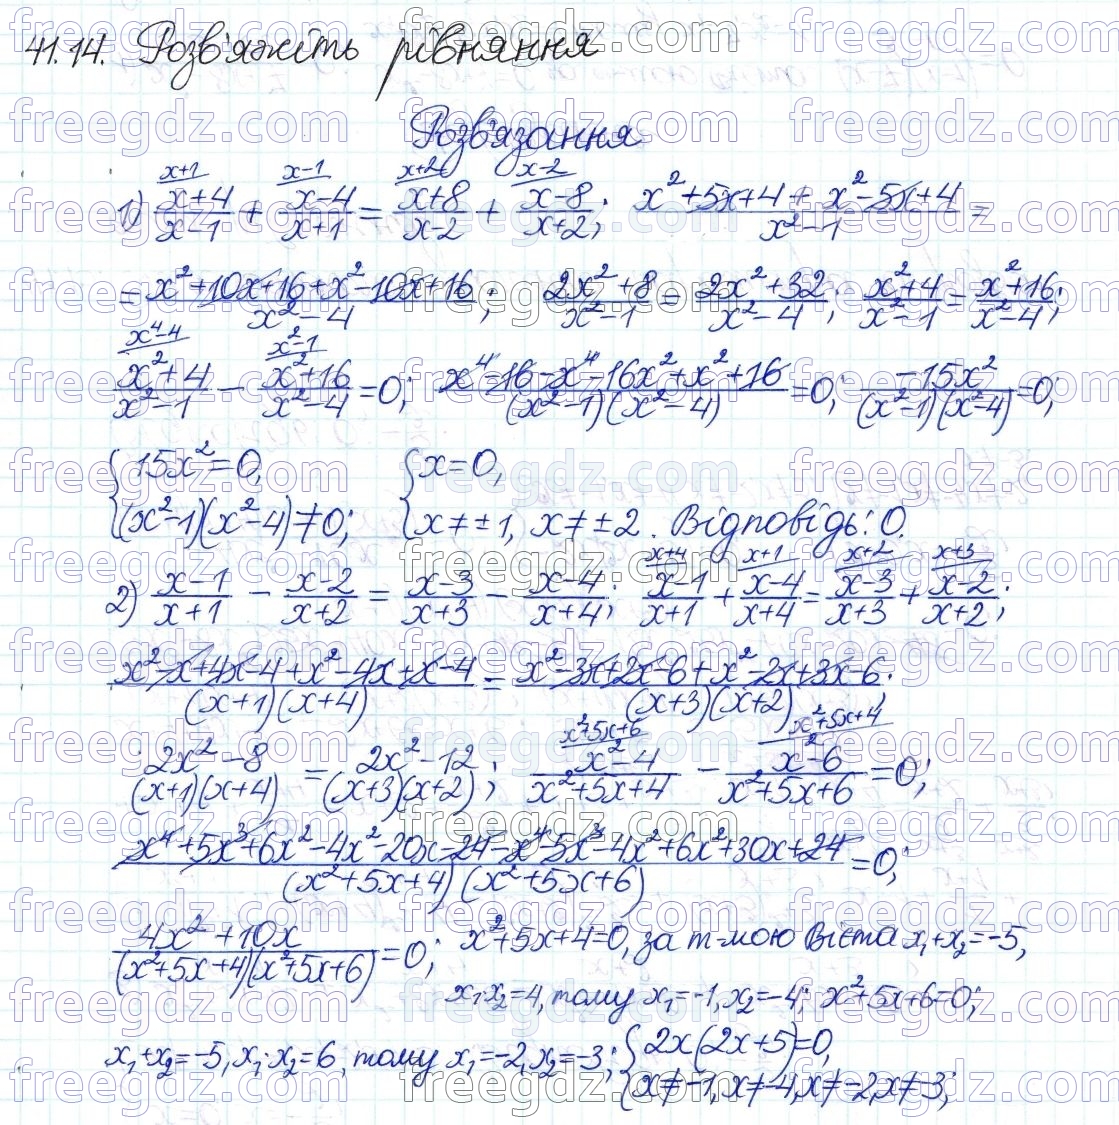 41.14. Розв'яжіть рівняння
Розв'язання
1) \frac{x+4}{x-1}^{x+1} + \frac{x-4}{x+1}^{x-1} = \frac{x+8}{x-2}^{x+2} + \frac{x-8}{x+2}^{x-2}; \frac{x^2+5x+4+x^2-5x+4}{x^2-1} =
= \frac{x^2+10x+16+x^2-10x+16}{x^2-4}; \frac{2x^2+8}{x^2-1} = \frac{2x^2+32}{x^2-4}; \frac{x^2+4}{x^2-1} = \frac{x^2+16}{x^2-4};
\frac{x^2+4}{x^2-1}^{x^4-4} - \frac{x^2+16}{x^2-4}^{x^2-1} = 0; \frac{x^4-16-x^4-16x^2+x^2+16}{(x^2-1)(x^2-4)} = 0; \frac{-15x^2}{(x^2-1)(x^2-4)} = 0;
{15x^2=0, {x=0,
{(x^2-1)(x^2-4)≠0; {x≠±1, x≠±2. Відповідь: 0.
2) \frac{x-1}{x+1} - \frac{x-2}{x+2} = \frac{x-3}{x+3} - \frac{x-4}{x+4}; \frac{x-1}{x+1}^{x+4} + \frac{x-4}{x+4}^{x+1} = \frac{x-3}{x+3}^{x+2} + \frac{x-2}{x+2}^{x+3};
\frac{x^2-x+4x-4+x^2-4x+x-4}{(x+1)(x+4)} = \frac{x^2-3x+2x-6+x^2-2x+3x-6}{(x+3)(x+2)};
\frac{2x^2-8}{(x+1)(x+4)} = \frac{2x^2-12}{(x+3)(x+2)}; \frac{x^2-4}{x^2+5x+4}^{x^2+5x+6} - \frac{x^2-6}{x^2+5x+6}^{x^2+5x+4} = 0;
\frac{x^4+5x^3+6x^2-4x^2-20x-24-x^4-5x^3-4x^2+6x^2+30x+24}{(x^2+5x+4)(x^2+5x+6)} = 0;
\frac{4x^2+10x}{(x^2+5x+4)(x^2+5x+6)} = 0; x^2+5x+4=0, за т-мою Вієта x_1+x_2=-5,
x_1·x_2=4, тому x_1=-1, x_2=-4; x^2+5x+6=0;
x_1+x_2=-5, x_1·x_2=6, тому x_1=-2, x_2=-3; {2x(2x+5)=0,
{x≠-1, x≠-4, x≠-2, x≠-3;
freegdz.com